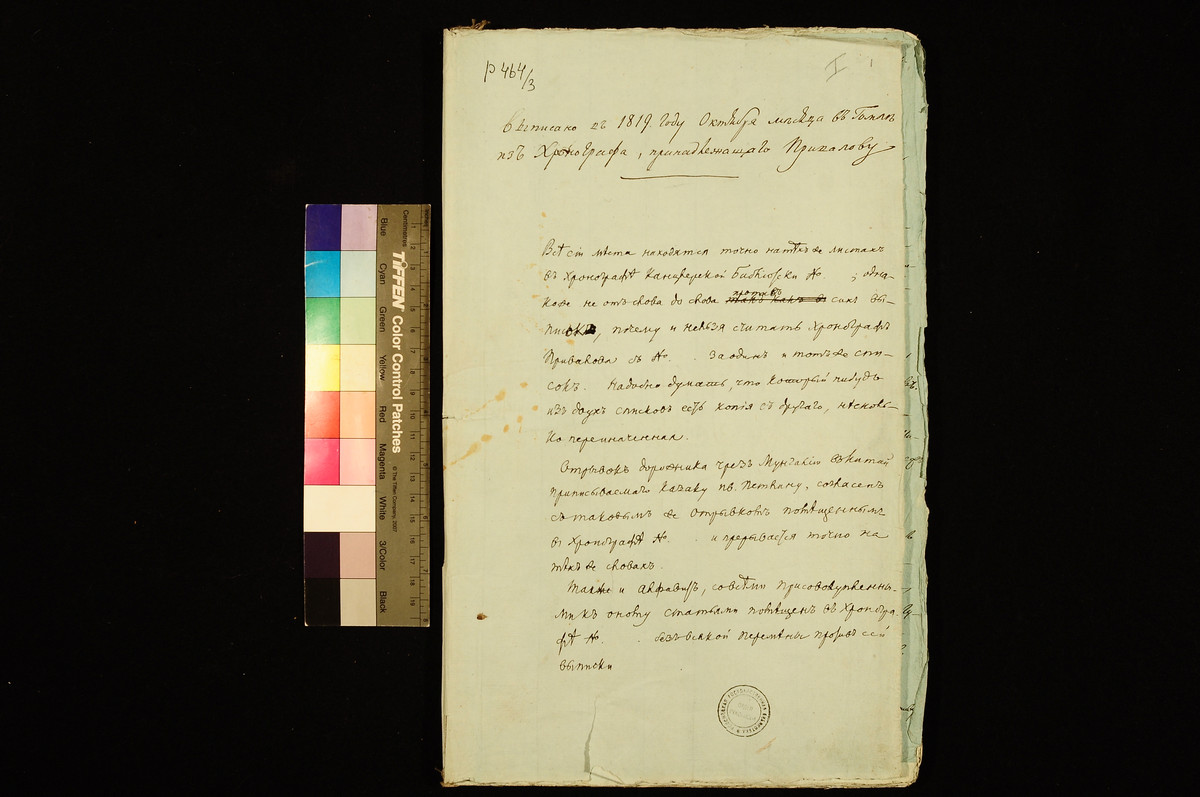 р 464/3
I 1
Выписано въ 1819. Году Октября месяца въ Гомле
изъ Хронографа, принадлежащаго Привалову
Всѣ сіи мѣста находятся точно на тѣхъ же листахъ
въ Хронографѣ Канцлерской Библіотеки № ; одна-
коже не отъ слова до слова противъ сихъ вы-
писокъ, почему и нельзя считать Хронографъ
Привалова съ № . за одинъ и тотъ же спи-
сокъ. Надобно думать, что который нибудь
изъ двухъ списковъ есть копія съ другаго, нѣсколь-
ко переиначенная.
Отрывокъ дорожника чрезъ Мунгалію въ Китай
приписываемаго Казаку Ив. Петлину, согласенъ
съ таковымъ же отрывкомъ помѣщеннымъ
въ Хронографѣ № . и прерывается точно на
тѣхъ же словахъ.
Также и Алфавитъ, со всѣми присовокупленны-
ми къ оному статьями помѣщенъ въ Хрoногра-
фѣ № . безъ всякой перемѣны противъ сей
выписки
Centimetres
Inches
TIFFEN Color Control Patches
© The Tiffen Company, 2007
Blue
Cyan
Green
Yellow
Red
Magenta
White
3/Color
Black